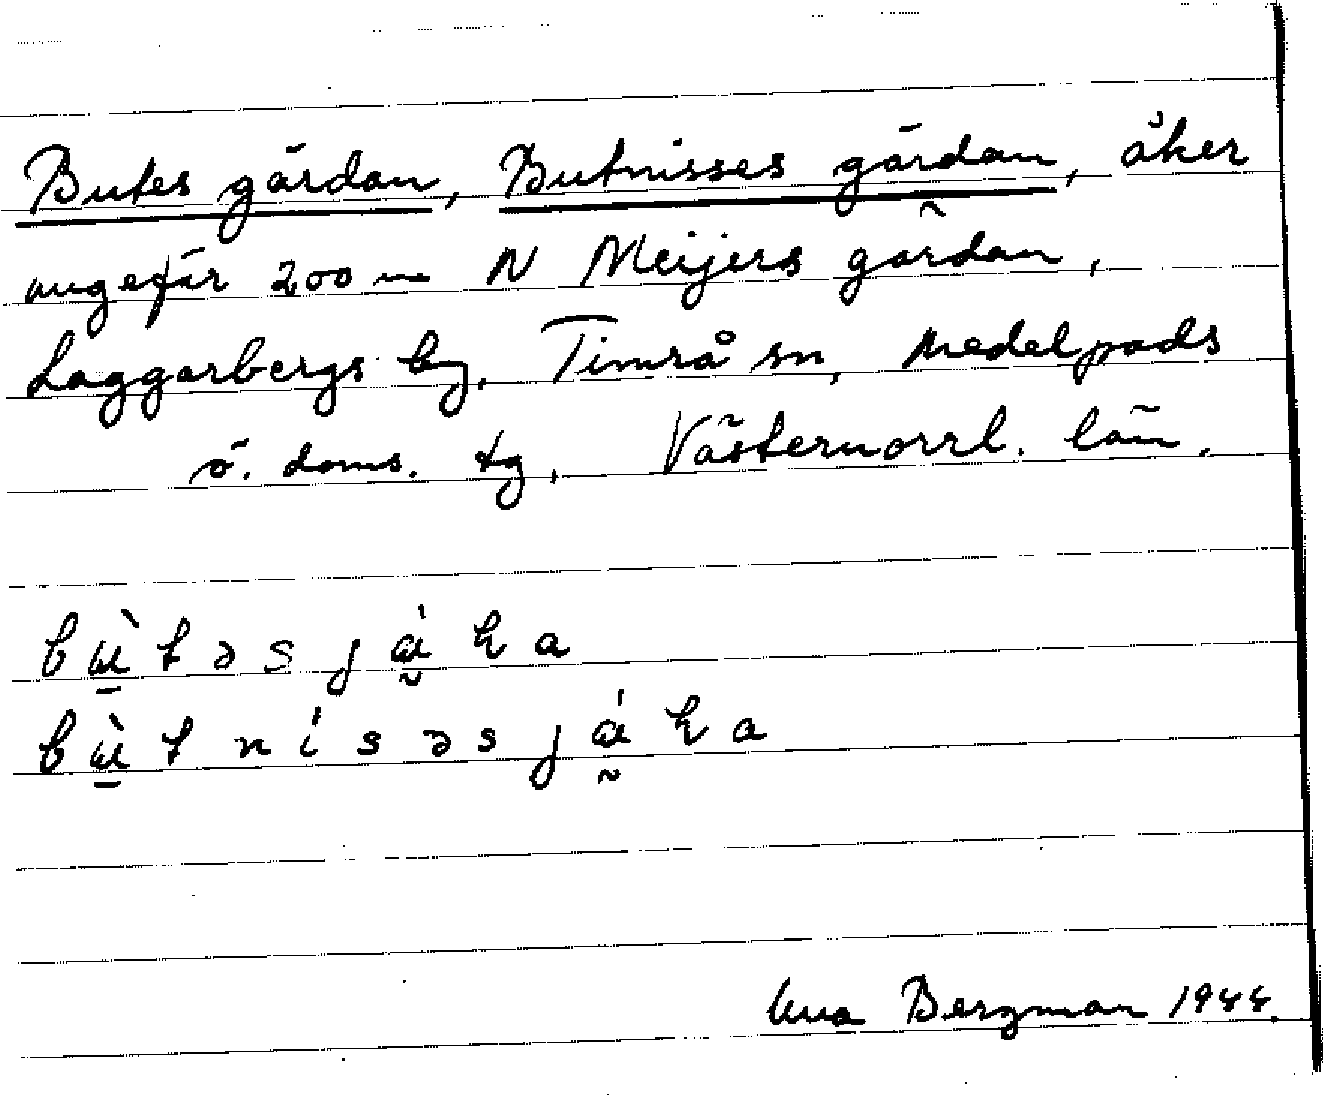 Butes gärdan, Butnisses gärdan, åker
ungefär 200 m N Meijers gärdan,
Laggarbergs by, Timrå sn, Medelpads
ö. doms. tg, Västernorrl. län.
Bergman 1944.